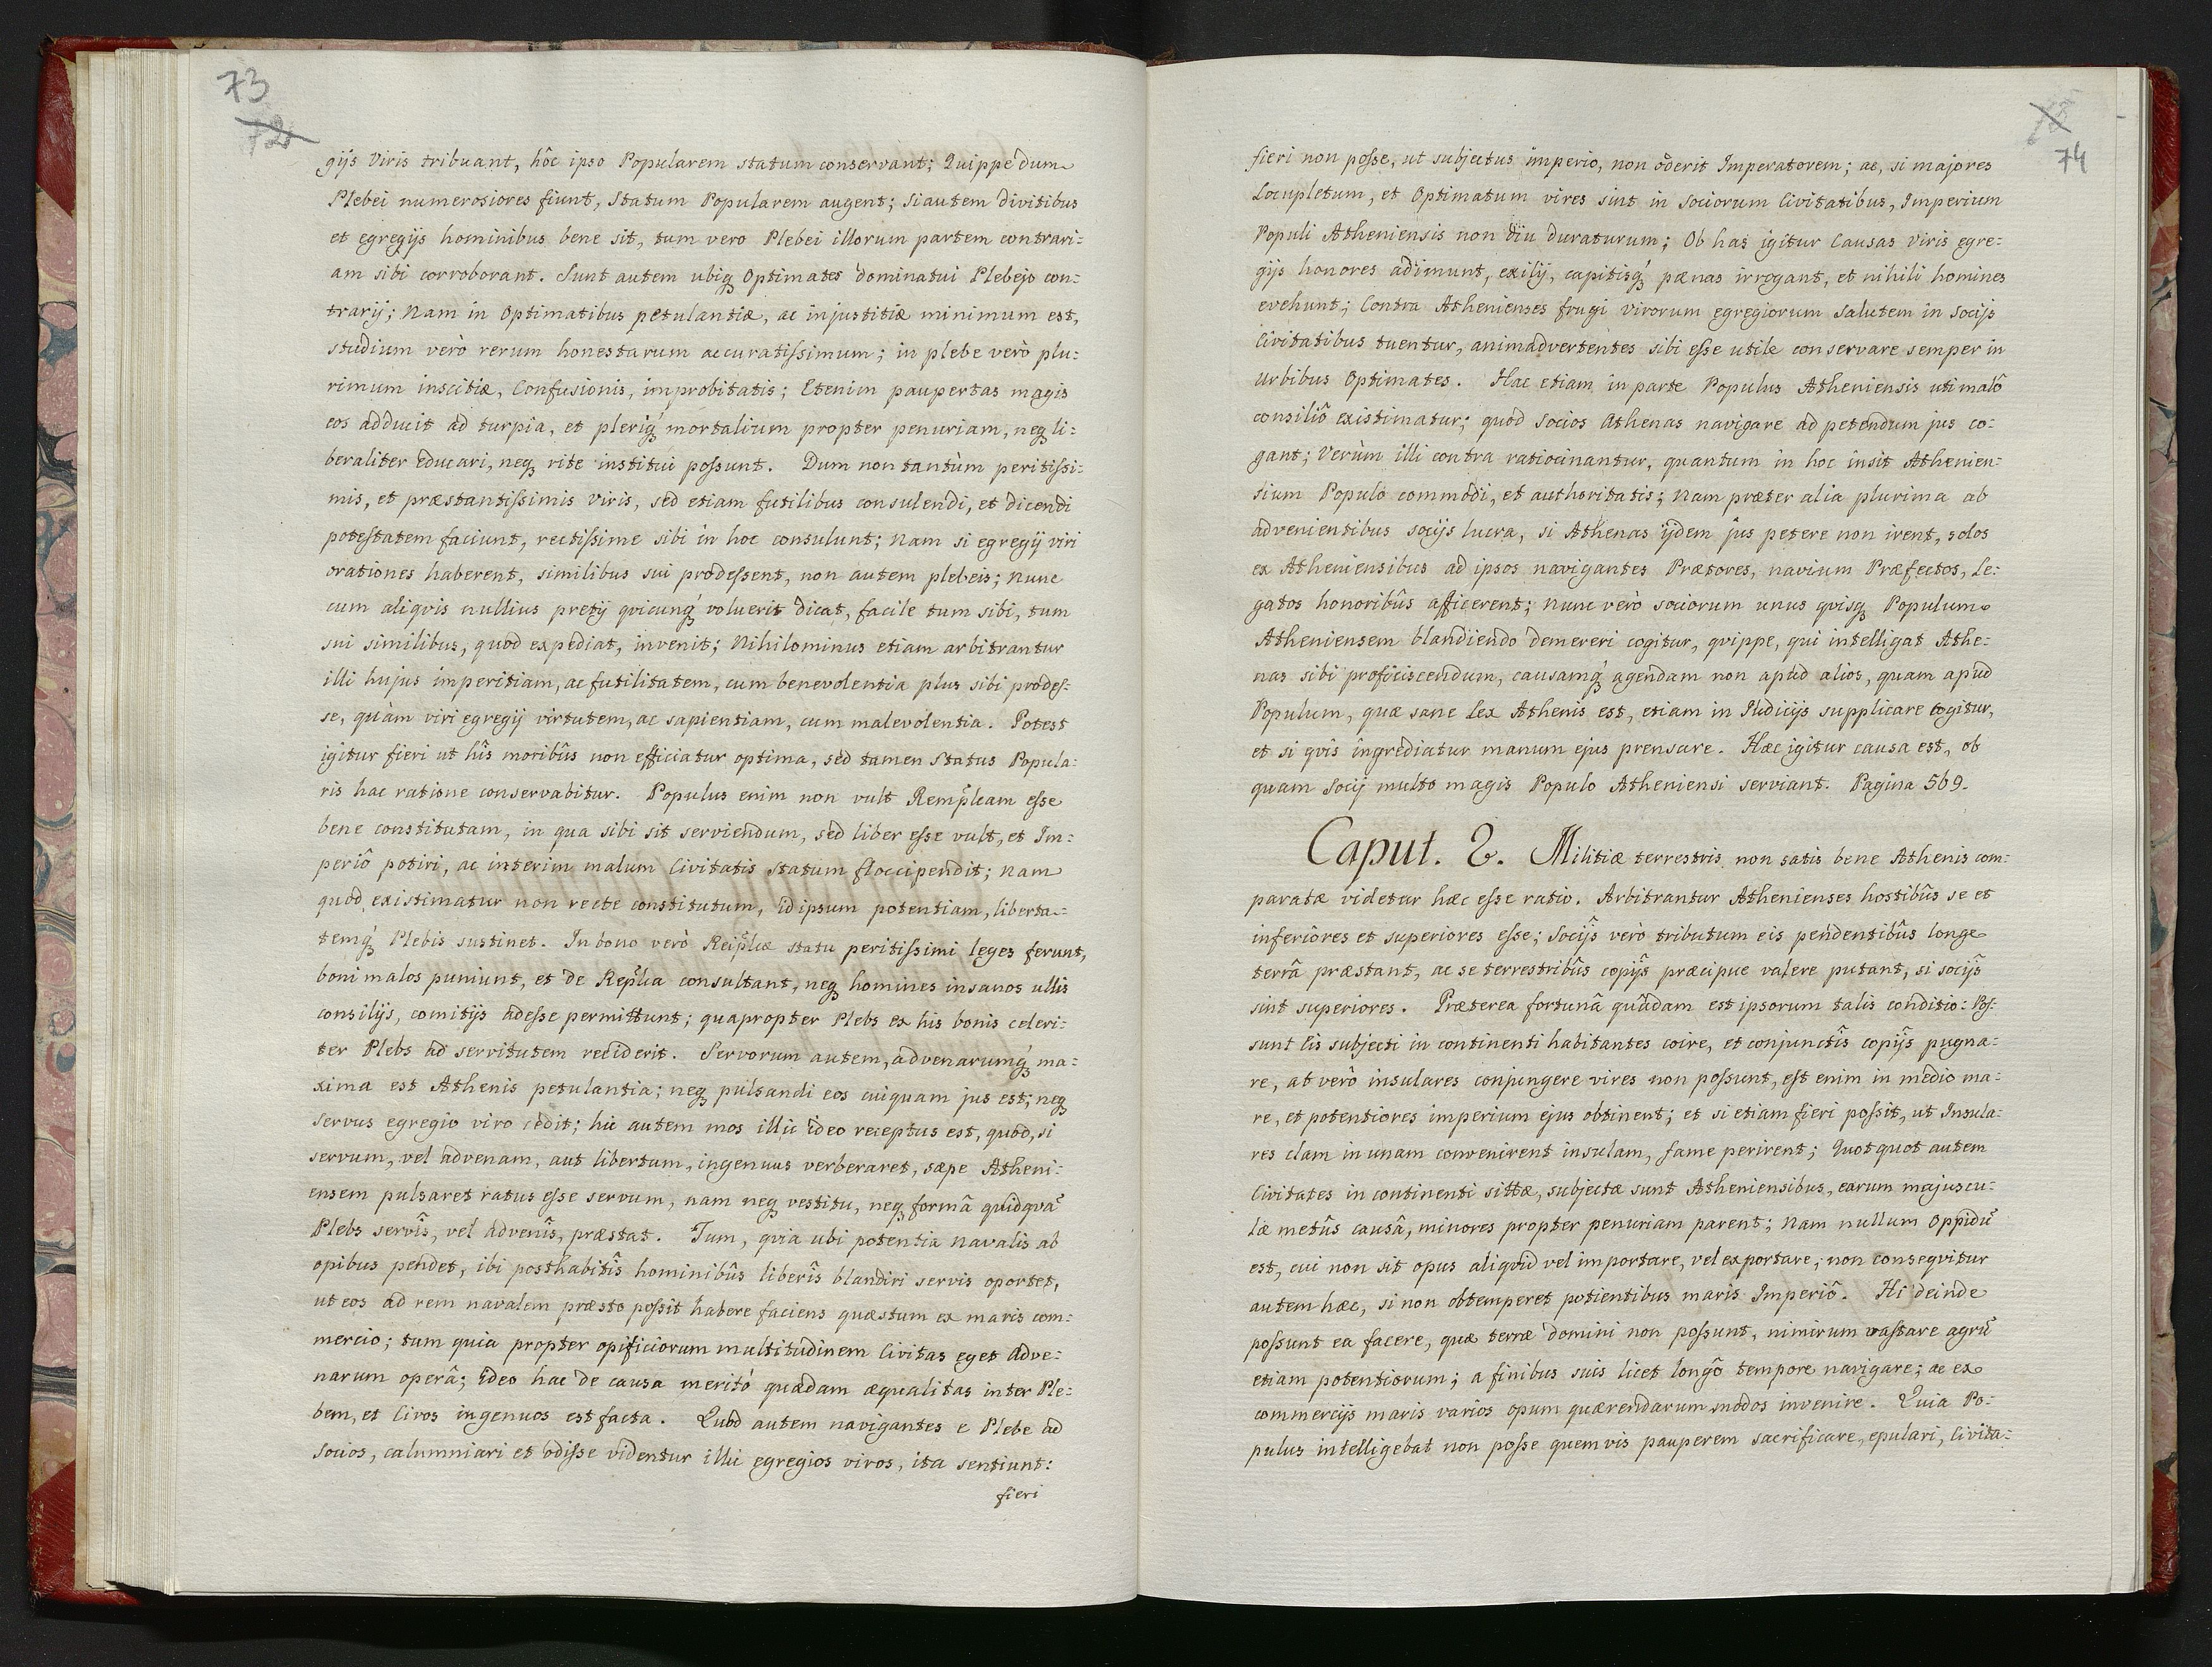 73
72
gijs Viris tribuant, hôc ipso Popularem statum conservant; Quippe dum
Plebei numerosiores fiunt, Statum Popularem augent; Si autem divitibus
et egregijs hominibus bene sit, tum vero Plebei illorum partem contrari:
am sibi corroborant. Sunt autem ubiq Optimates dominatui Plebejo con:
trarij; Nam in Optimatibus petulantiæ, ac injustitiæ minimum est,
studium verò rerum honestarum accuratissimum; in plebe verò plu:
rimum inscitiæ, Confusionis, improbitatis; Etenim paupertas magis
eos adducit ad turpia, et pleriq mortalium propter penuriam, neq li:
beraliter educari, neq rite institui possunt. Dum non tantùm peritissi:
mis, et præstantissimis viris, sed etiam futilibus consulendi, et dicendi
potestatem faciunt, rectissime sibi in hoc consulunt; Nam si egregij viri
orationes haberent, similibus sui prodessent, non autem plebeis; nunc
cum aliqvis nullius pretij qvicunq voluerit dicat, facile tum sibi, tum
sui similibus, quod expediat, invenit; Nihilominus etiam arbitrantur
illi hujus imperitiam, ac futilitatem, cum benevolentia plus sibi prodes-
se, quàm viri egregij virtutem, ac sapientiam, cum malevolentia. Potest
igitur fieri ut hîs moribûs non efficiatur optima, sed tamen Status Popula:
ris hac ratione conservabitur. Populus enim non vult Remplcam esse
bene constitutam, in qua sibi sit serviendum, sed liber esse vult, et Im:
periô potiri, ac interim malum Civitatis Statum floccipendit; Nam
quod existimatur non recte constitutum, id ipsum potentiam, liberta-
temq Plebis sustinet. In bono verò Reiplcæ statu peritissimi leges ferunt,
boni malos puniunt, et de Replca consultant, neq homines insanos ullis
consilijs, comitijs adesse permittunt; quapropter Plebs ex his bonis celeri:
ter Plebs ad servitutem reciderit. Servorum autem, advenarumq ma:
xima est Athenis petulantia; neq pulsandi eos cuiquam jus est; neq
servus egregio viro cedit; hic autem mos illic ideo receptus est, quod, si
servum, vel advenam, aut libertum, ingenuus verberaret, sæpe Atheni:
ensem pulsaret ratus esse servum, nam neq vestitu, neq formâ quidqvã
Plebs servîs, vel advenîs, præstat. Tum, qvia ubi potentia navalis ab
opibus pendet, ibi posthabitîs hominibûs liberîs blandiri servis oportet,
ut eos ad rem navalem præsto possit habere faciens quæstum ex maris com:
mercio; tum quia propter opificiorum multitudinem Civitas eget adve:
narum operâ; ideo hac de causa meritò quædam æqualitas inter Ple:
bem, et Cives ingenuos est facta. Quod autem navigantes e Plebe ad
Socios, calumniari et odisse videntur illic egregios viros, ita sentiunt:
fieri
73
74
fieri non posse, ut subjectus imperio, non oderit Imperatorem; ac, si majores
Locupletum, et Optimatum vires sint in Sociorum Civitatibus, Imperium
Populi Atheniensis non diu duraturum; Ob has igitur Causas Viris egre:
gijs honores adimunt, exilij, capitisq pœnas irrogant, et nihili homines
evehunt; Contra Athenienses frugi virorum egregiorum Salutem in Socijs
Civitatibus tuentur, animadvertentes sibi esse utile conservare semper in
Urbibus Optimates. Hac etiam in parte Populus Atheniensis uti malô
consiliô existimatur; quod Socios Athenas navigare ad petendum jus co:
gant; Verùm illi contra ratiocinantur, quantum in hoc insit Athenien:
sium Populo commodi, et authoritatis; Nam præter alia plurima ab
advenientibus socijs lucra, si Athenas ijdem jus petere non irent, solos
ex Atheniensibus ad ipsos navigantes Prætores, navium Præfectos, Le:
gatos honoribûs afficerent; Nunc verò sociorum unus qvisq Populum
Atheniensem blandiendo demereri cogitur, qvippe, qui intelligat Athe:
nas sibi proficiscendum, causamq agendam non apud alios, quam apud
Populum, quæ sane Lex Athenis est, etiam in Judicijs supplicare cogitur,
et si qvis ingrediatur manum ejus prensare. Hæc igitur causa est, ob
quam Socij multo magis Populo Atheniensi serviant. Pagina 569.
Caput. 2. Militiæ terrestris non satis bene Athenis com:
paratæ videtur hæc esse ratio. Arbitrantur Athenienses hostibûs se et
inferiôres et superiores esse; Socijs verò tributum eis pendentibûs longe
terrâ præstant, ac se terrestribûs copijs præcipue valere putant, si socijs
sint superiores. Præterea fortunâ quâdam est ipsorum talis conditio: Pos-
sunt Eis subjecti in continenti habitantes coire, et conjunctîs copijs pugna:
re, at verò insulares conjungere vires non possunt, est enim in medio ma:
re, et potentiores imperium ejus obtinent; et si etiam fieri possit, ut Insula:
res clam in unam convenirent insulam, fame perirent; Quotquot autem
Civitates in continenti sittæ, subjectæ sunt Atheniensibus, earum majuscu:
læ metûs causâ, minores propter penuriam parent; Nam nullum Oppidũ
est, cui non sit opus aliqvid vel importare, vel exportare; non conseqvitur
autem hæc, si non obtemperet potientibus maris Imperiô. Hi deinde
possunt ea facere, quæ terræ domini non possunt, nimirum vastare agrũ
etiam potentiorum; a finibus suis licet longô tempore navigare; ac ex
commercijs maris varios opum quærendarum modos invenire. Quia Po:
pulus intelligebat non posse quemvis pauperem sacrificare, epulari, Civita: